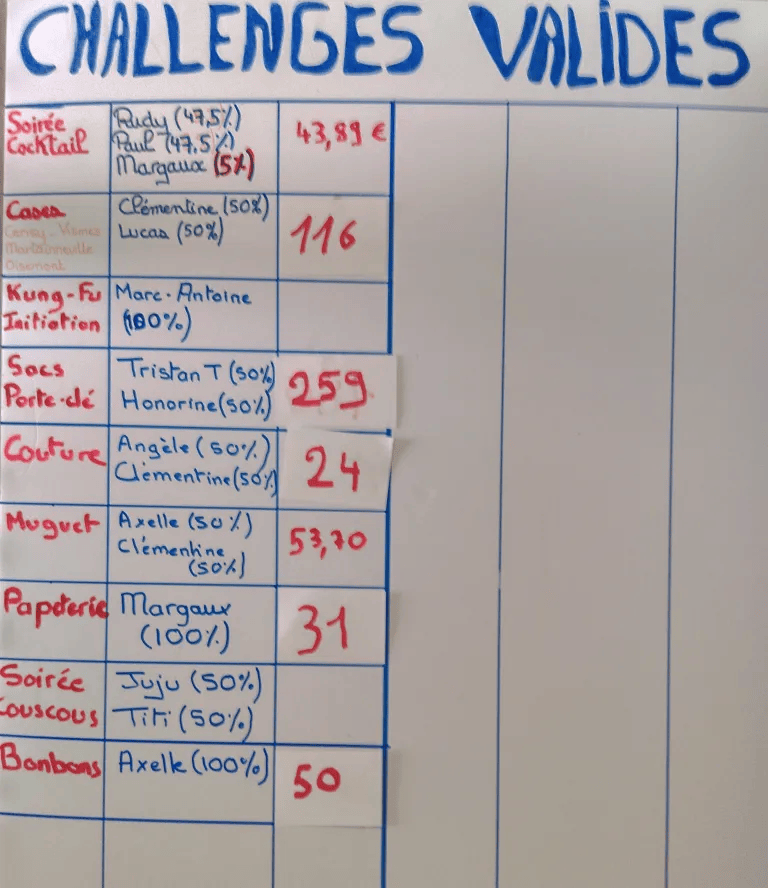 CHALLENGES VALIDES
Soirée
Cocktail
Rudy (47,5%)
Paul (47,5%)
Margaux (5%)
43,89 €
Cases
Cerisy - Vismes
Martainneville
Oisemont
Clémentine (50%)
Lucas (50%)
116
Kung-Fu
Initiation
Marc-Antoine
(100%)
Sacs
Porte-clé
Tristan T (50%)
Honorine (50%)
259
Couture
Angèle (50%)
Clémentine (50%)
24
Muguet
Axelle (50%)
Clémentine
(50%)
53,70
Papeterie
Margaux
(100%)
31
Soirée
Couscous
Juju (50%)
Titi (50%)
Bonbons
Axelle (100%)
50